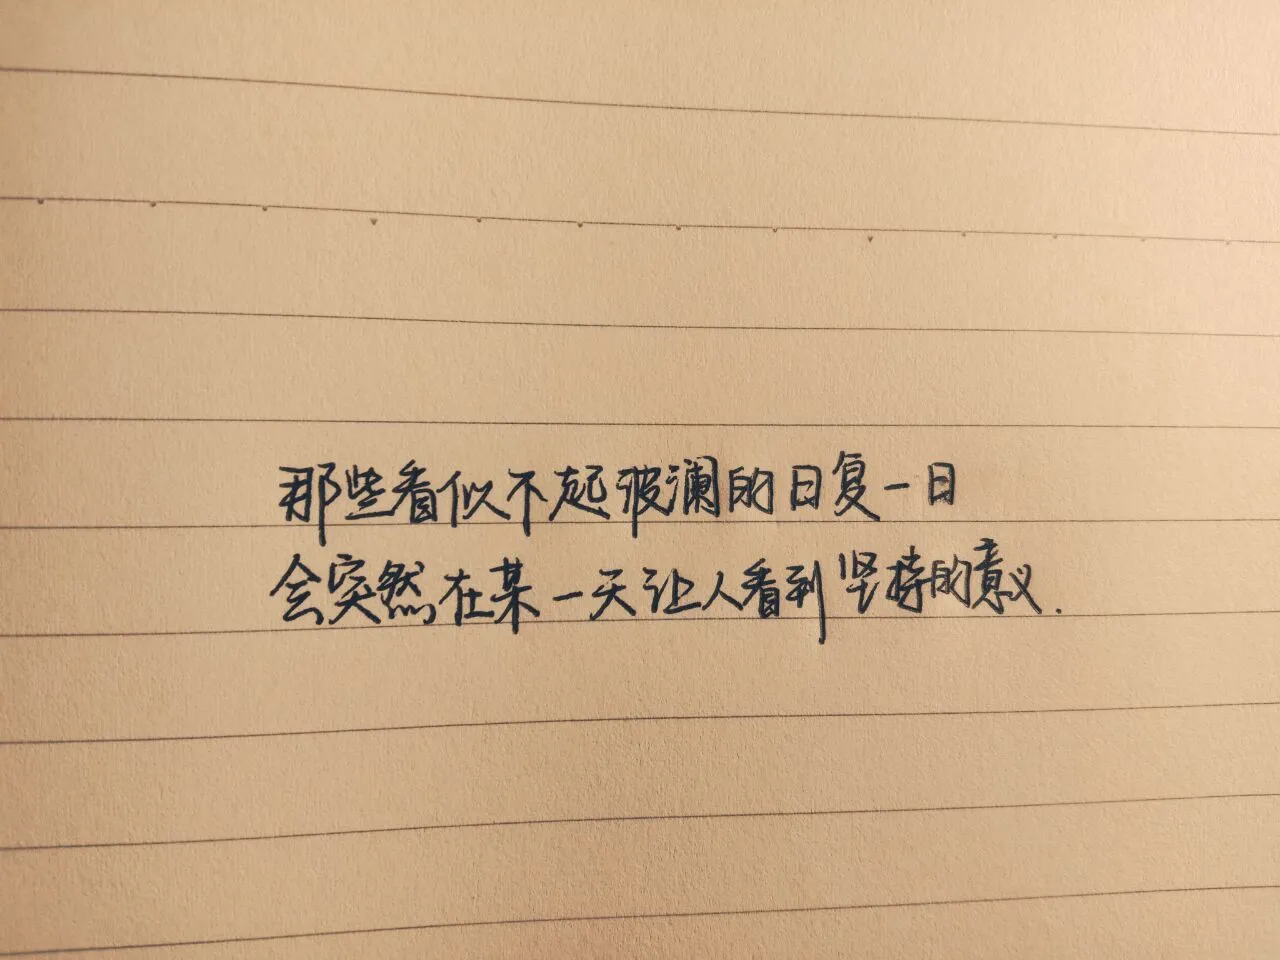 那些看似不起波澜的日复一日
会突然在某一天让人看到坚持的意义.